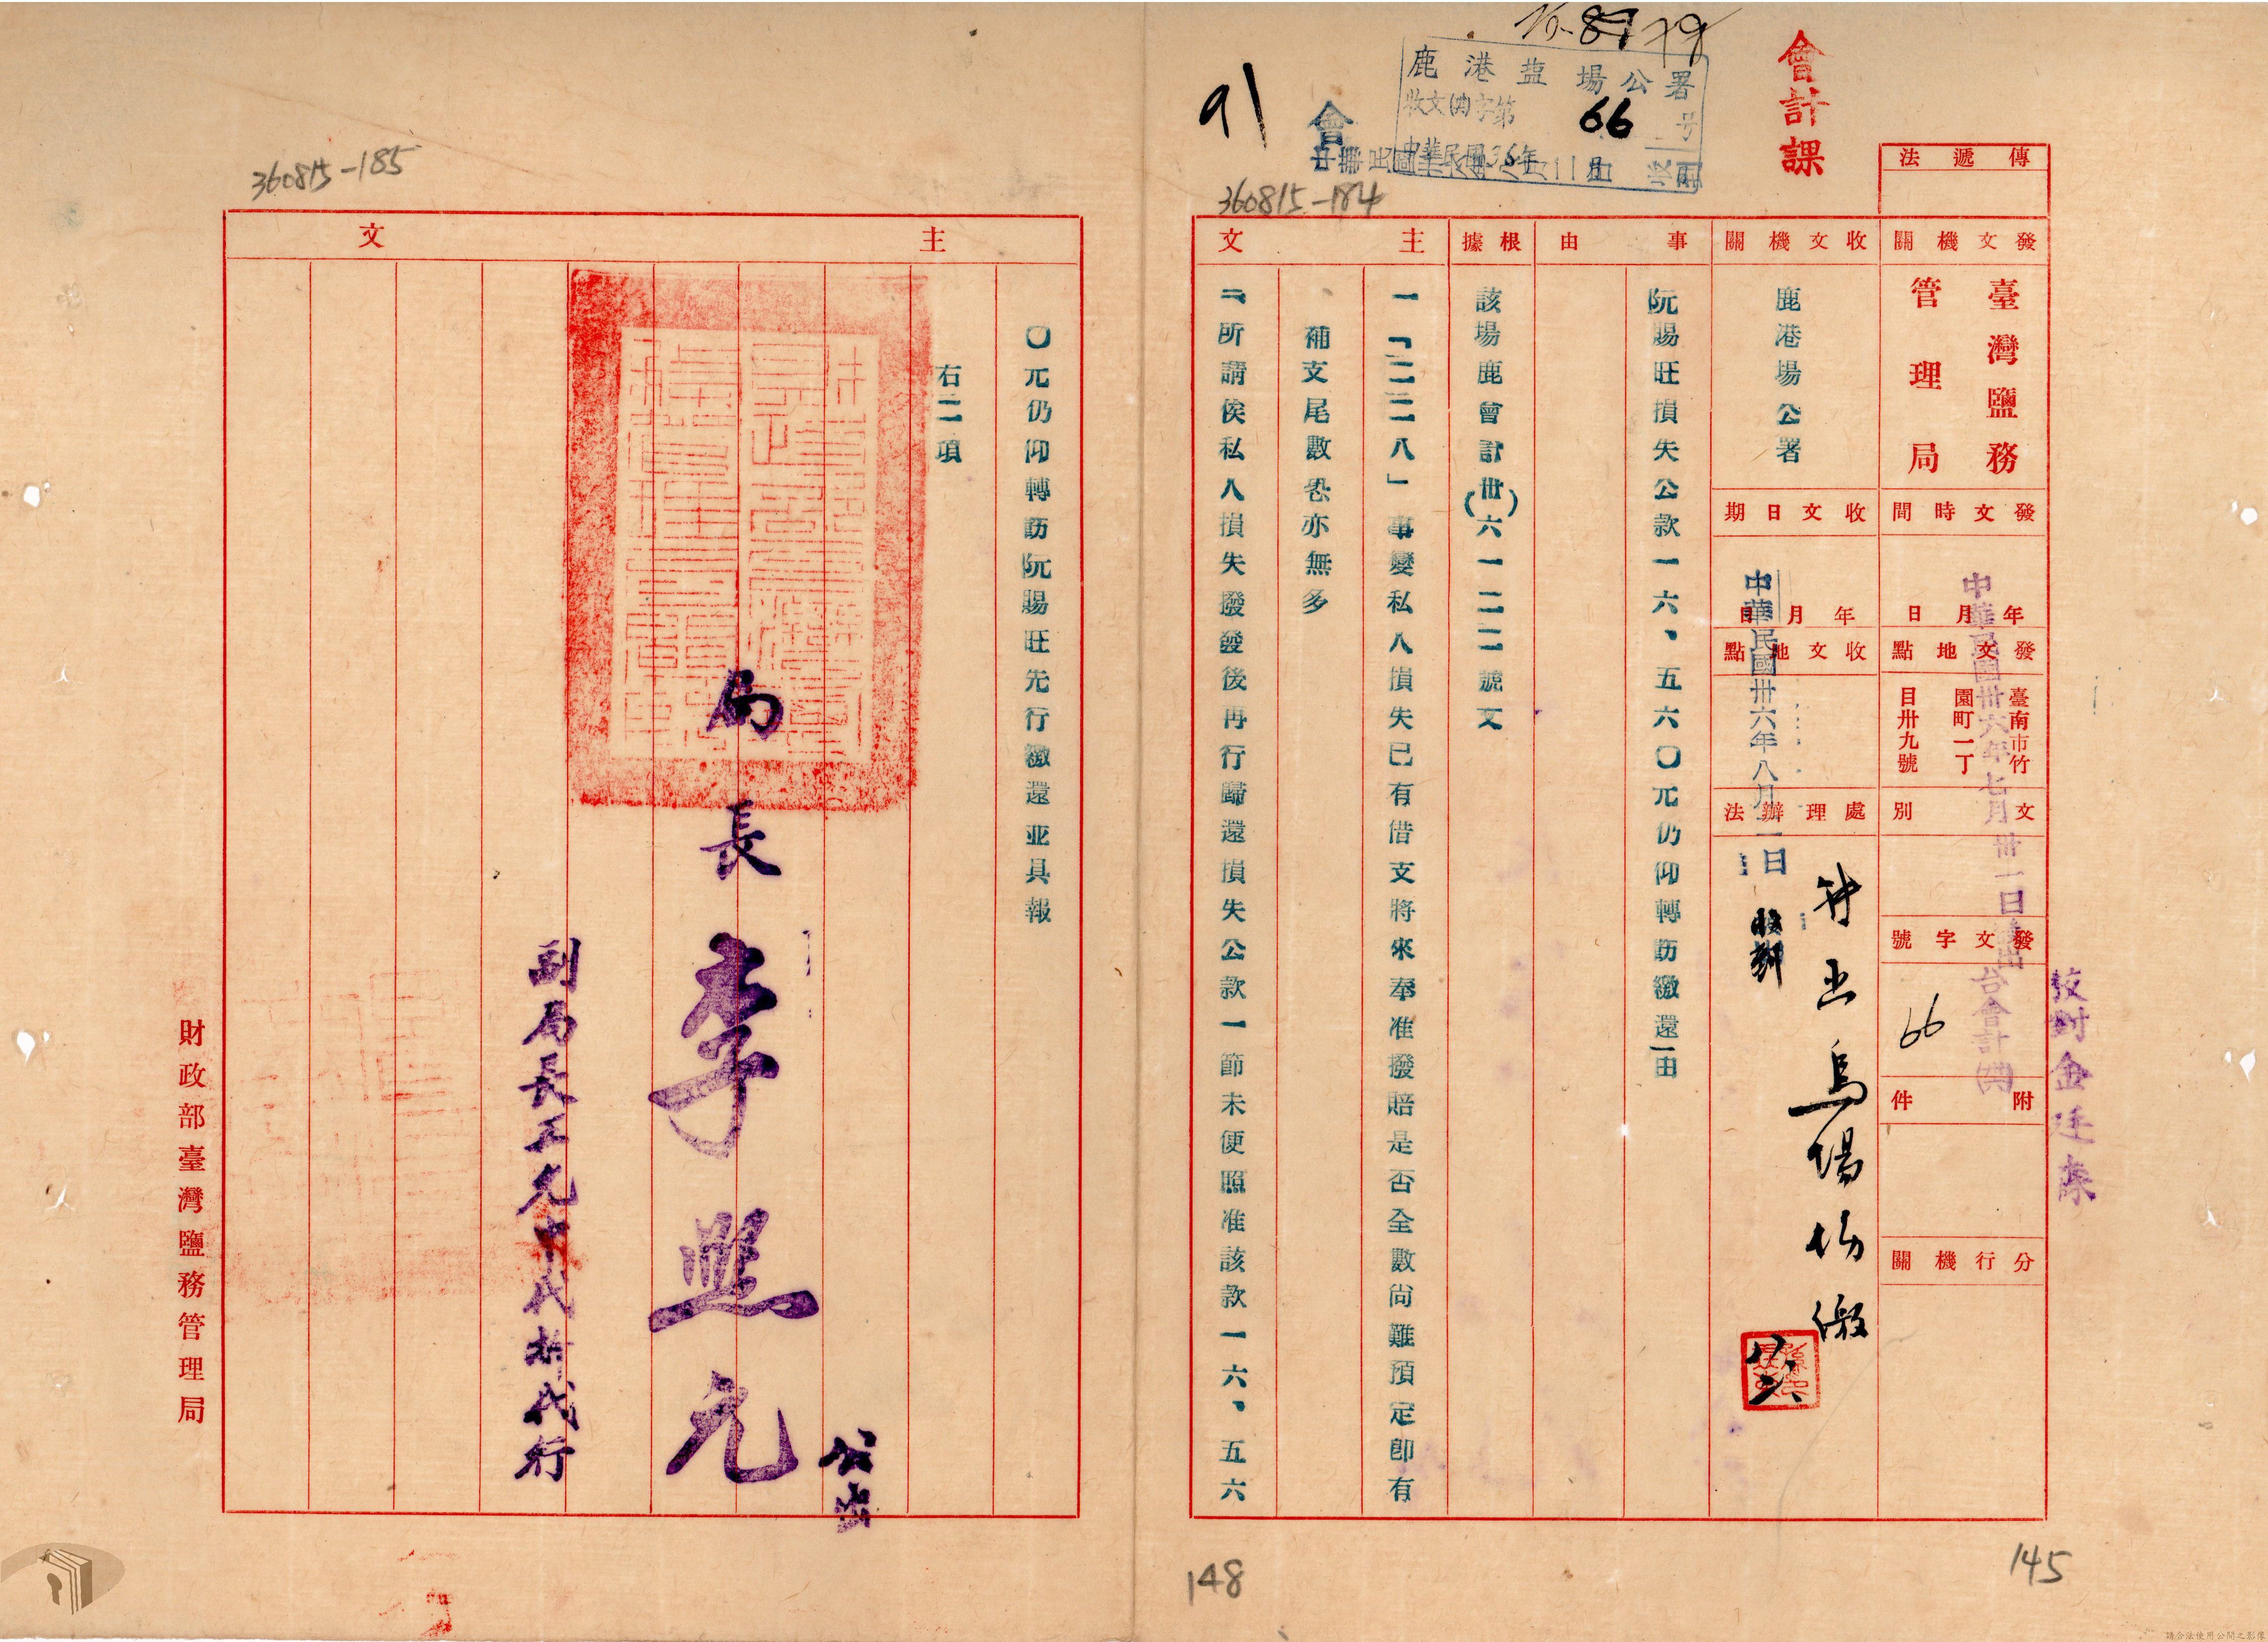 會計課
傳遞法
鹿港盐場公署
收文(內)字第66号
中華民國36年
會
91
360815-184
發文機關
臺灣鹽務管理局
發文時間
年月日
中華民國卅六年七月卅一日
發文地點
臺南市竹園町一丁目卅九號
文別
發文字號
台會計(內)
66
附件
分行機關
校對金廷
收文機關
鹿港場公署
收文日期
年月日
中華民國卅六年八月
日
收文地點
處理辦法
事由
阮賜旺損失公款一六、五六〇元仍仰轉飭繳還由
根據
該場鹿會計(卅)六一二二號文
主文
一「二二八」事變私人損失已有借支將來奉准撥賠是否全數尚難預定卽有
補支尾數恐亦無多
二、所請俟私人損失撥發後再行歸還損失公款一節未便照准該款一六、五六
145
148
360815-185
主文
〇元仍仰轉飭阮賜旺先行繳還並具報
右二項
公出
局長李熙元
副局長代行
財政部臺灣鹽務管理局
請合法使用公開之影像